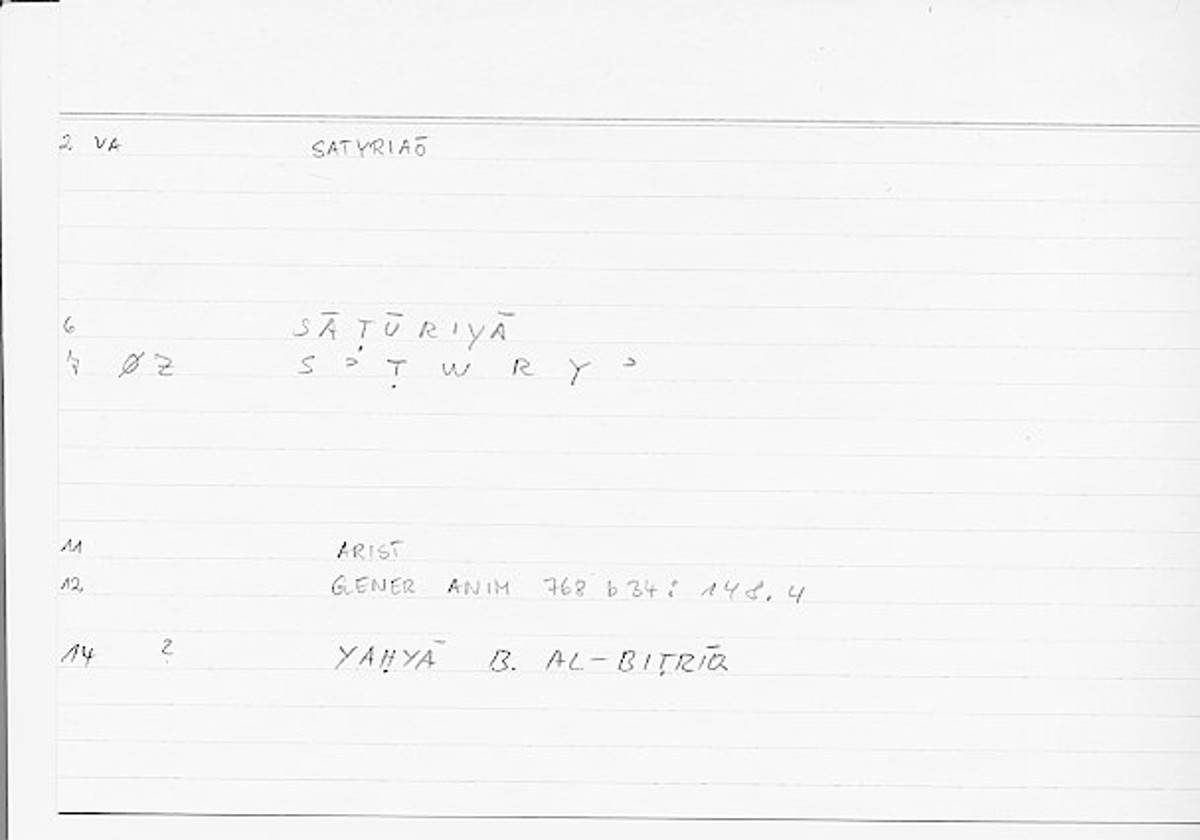 2 VA SATYRIAŌ
6 SĀṬŪRIYĀ
7 ØZ S ʾ Ṭ W R Y ʾ
11 ARIST
12 GENER ANIM 768 b 34 : 148.4
14 ? YAḤYĀ B. AL-BIṬRĪQ